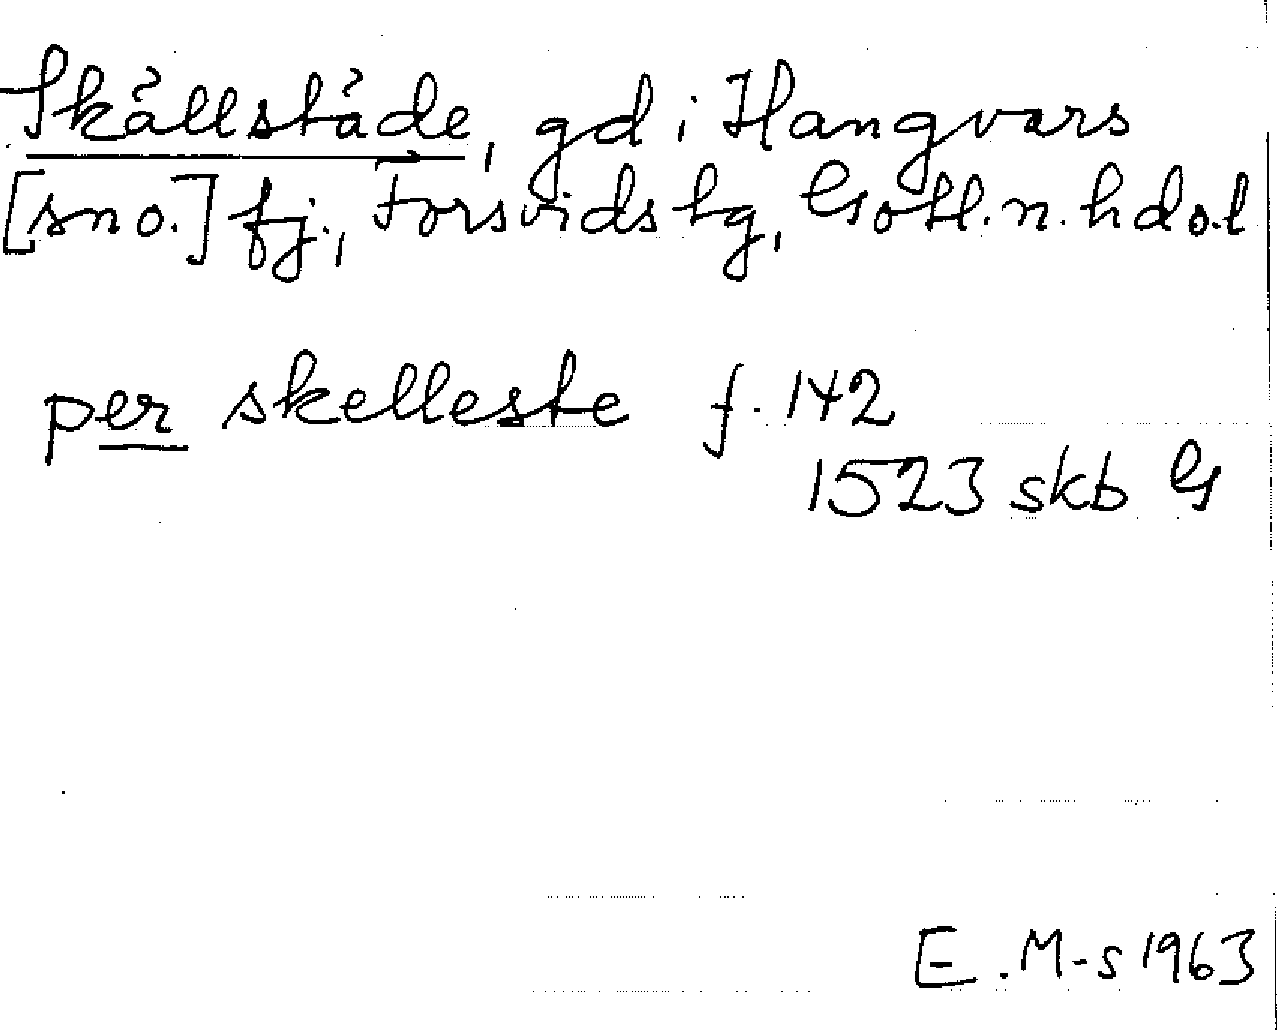 Skällstäde, gd i Hangvars
[sno.] fj., Forsvids tg, Gotl. n. hds. l
per skelleste f. 142
1523 skb G
E. M-s 1963